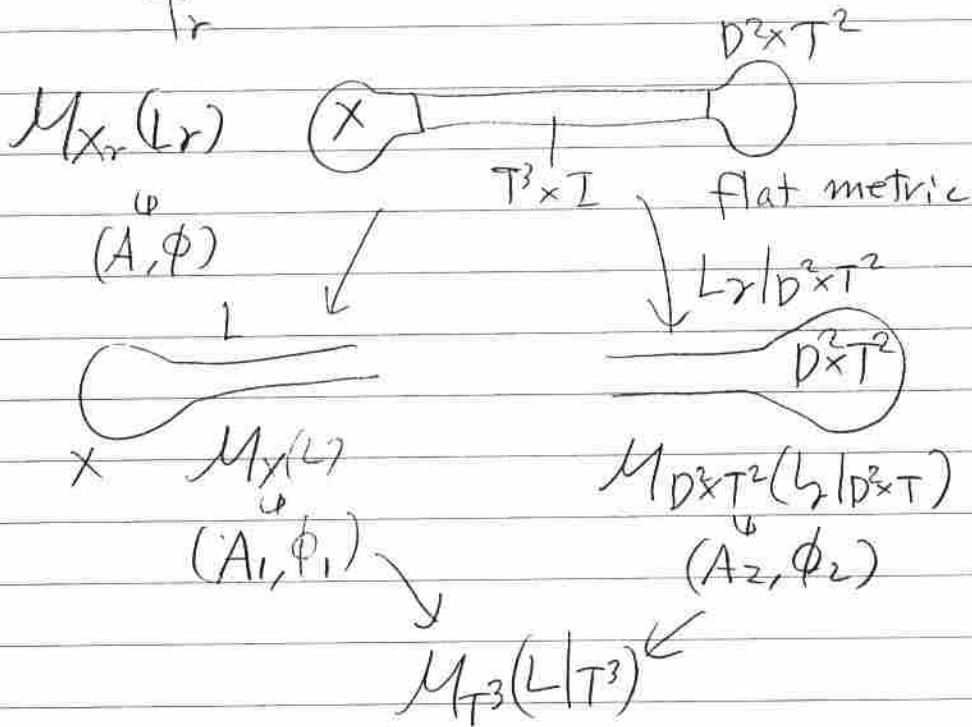 r
D²×T²
M_{X_r}(L_r)
X
T³×I
flat metric
∈
(A,ϕ)
L_r|D²×T²
L
D²×T²
X
M_X(L)
M_{D²×T²}(L_r|D²×T)
∈
∈
(A₁,ϕ₁)
(A₂,ϕ₂)
M_{T³}(L|T³)